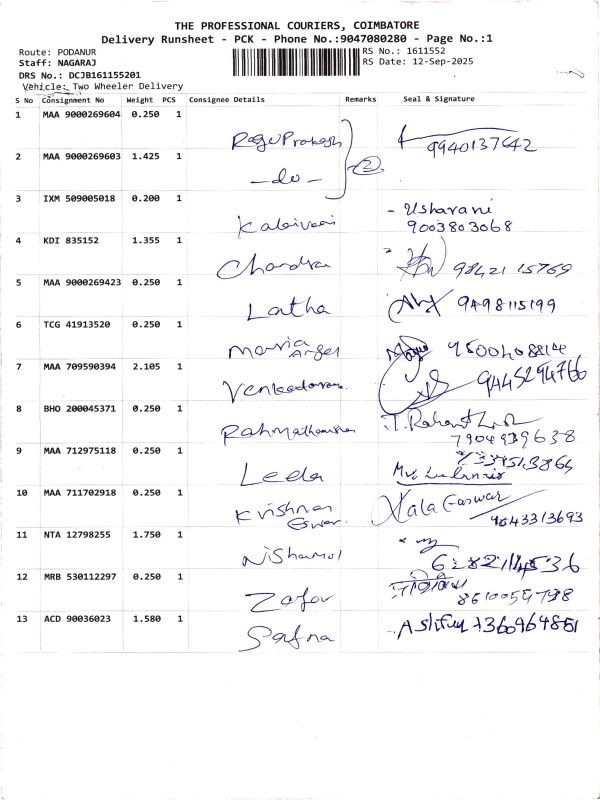 THE PROFESSIONAL COURIERS, COIMBATORE
Delivery Runsheet - PCK - Phone No.:9047080280 - Page No.:1
Route: PODANUR
RS No.: 1611552
Staff: NAGARAJ
RS Date: 12-Sep-2025
DRS No.: DCJB161155201
Vehicle: Two Wheeler Delivery
S No Consignment No Weight PCS Consignee Details Remarks Seal & Signature
1 MAA 9000269604 0.250 1
9940137642
2 MAA 9000269603 1.425 1
2
-do-
3 IXM 509005018 0.200 1
- Usharani
9003803068
4 KDI 835152 1.355 1
Chandra 98421 15769
5 MAA 9000269423 0.250 1
Latha 9498115199
6 TCG 41913520 0.250 1
Maria
Angel
7 MAA 709590394 2.105 1
9445294766
8 BHO 200045371 0.250 1
7904939638
9 MAA 712975118 0.250 1
Leela
10 MAA 711702918 0.250 1
Krishnan
9843313693
11 NTA 12798255 1.750 1
12 MRB 530112297 0.250 1
Zafar
13 ACD 90036023 1.580 1
Safna